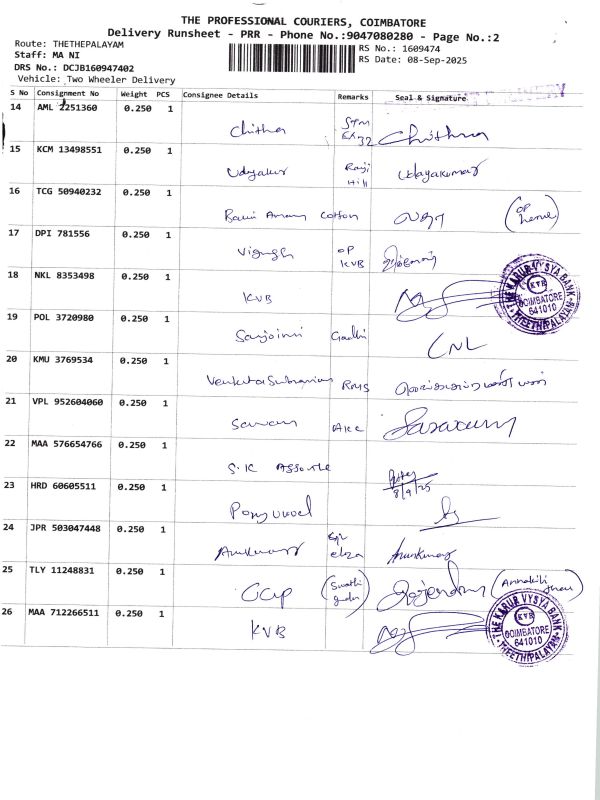 THE PROFESSIONAL COURIERS, COIMBATORE
Delivery Runsheet - PRR - Phone No.:9047080280 - Page No.:2
Route: THETHEPALAYAM
Staff: MA NI
DRS No.: DCJB160947402
Vehicle: Two Wheeler Delivery
RS No.: 1609474
RS Date: 08-Sep-2025
S No Consignment No Weight PCS Consignee Details Remarks Seal & Signature
14 AML 2251360 0.250 1 Chitha Chithra
15 KCM 13498551 0.250 1 Udayakur Ranji Hill Udayakumar
16 TCG 50940232 0.250 1 Cotton
17 DPI 781556 0.250 1 Vignesh OP KVB
18 NKL 8353498 0.250 1 KVB
THE KARUR VYSYA BANK KVB COIMBATORE 641010 THEETHIPALAYAM
19 POL 3720980 0.250 1 Sanjoini Gandhi CNL
20 KMU 3769534 0.250 1 Venkata Subramian RMS
21 VPL 952604060 0.250 1 AKC
22 MAA 576654766 0.250 1 S.K Associte 8/9/25
23 HRD 60605511 0.250 1
24 JPR 503047448 0.250 1 Arunkumar
25 TLY 11248831 0.250 1 CCIP Rajendra
26 MAA 712266511 0.250 1 KVB
THE KARUR VYSYA BANK KVB COIMBATORE 641010 THEETHIPALAYAM